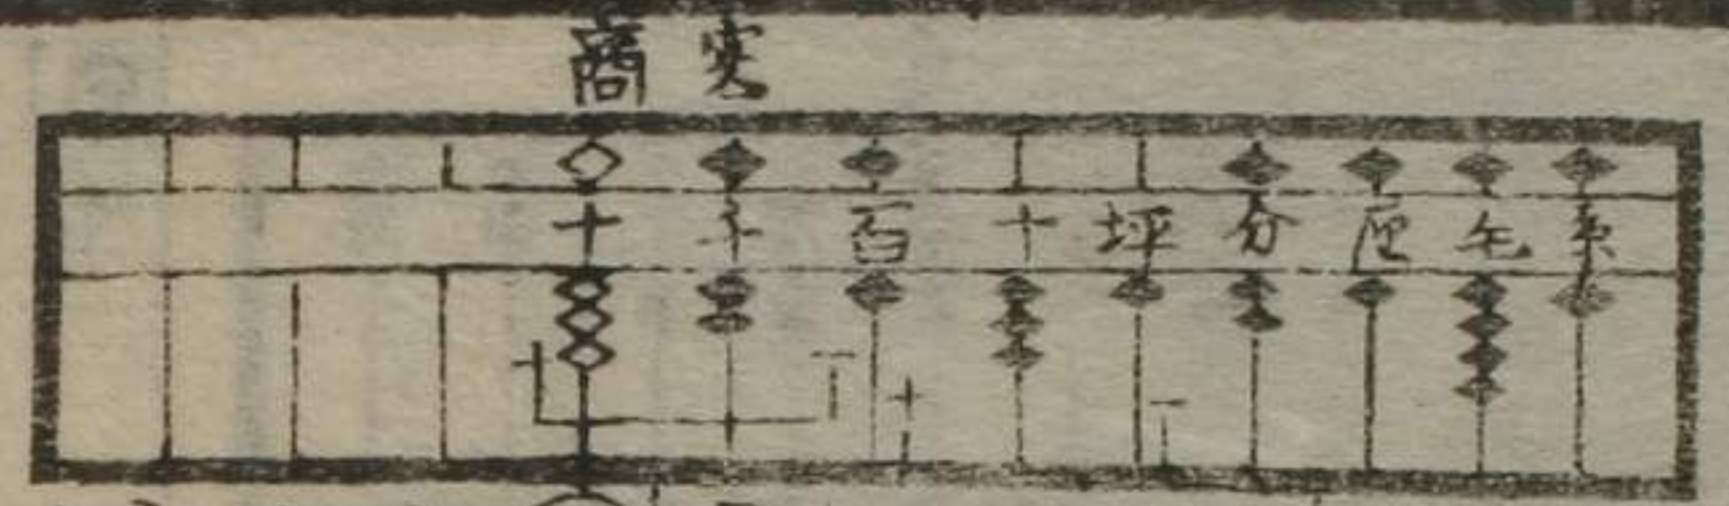 商実
十千百十坪分厘毛糸
十一
十一